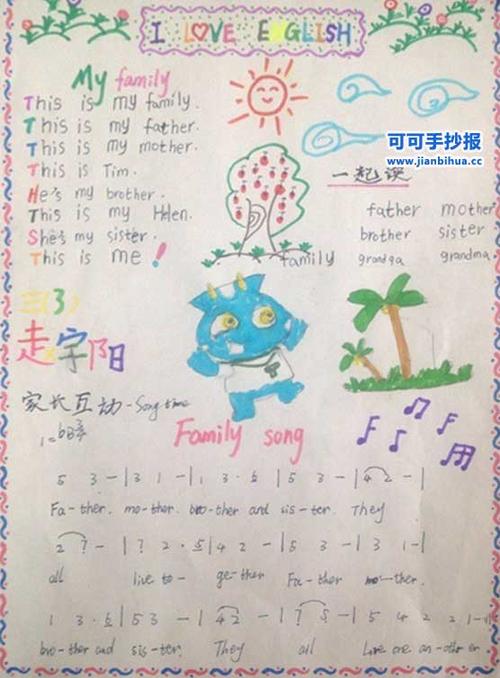 I LOVE ENGLISH
My family
This is my family.
This is my father.
This is my mother.
This is Tim.
He's my brother.
This is my Helen.
She's my sister.
This is me!
可可手抄报
www.jianbihua.cc
一起读
father mother
brother sister
family grandpa grandma
三(3)
家长互动-Song time
Family song
5 3 - | 3 1 - | 1 3 · 5 | 5 3 - | 4 2 - |
Fa-ther. mo-ther. bro-ther and sis-ter. They
2 7 - | 7 2 · 5 | 4 2 - | 5 3 - | 3 1 - |
all live to- ge-ther Fa-ther mo-ther.
1 3 · 5 | 5 3 - | 4 2 - | 7 5 - | 5 4 2 2 1 - ||
bro-ther and sis-ter. They all Love one an-oth er.